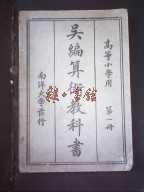 高等小學用
第一冊
吳編算術教科書
南洋大學發行